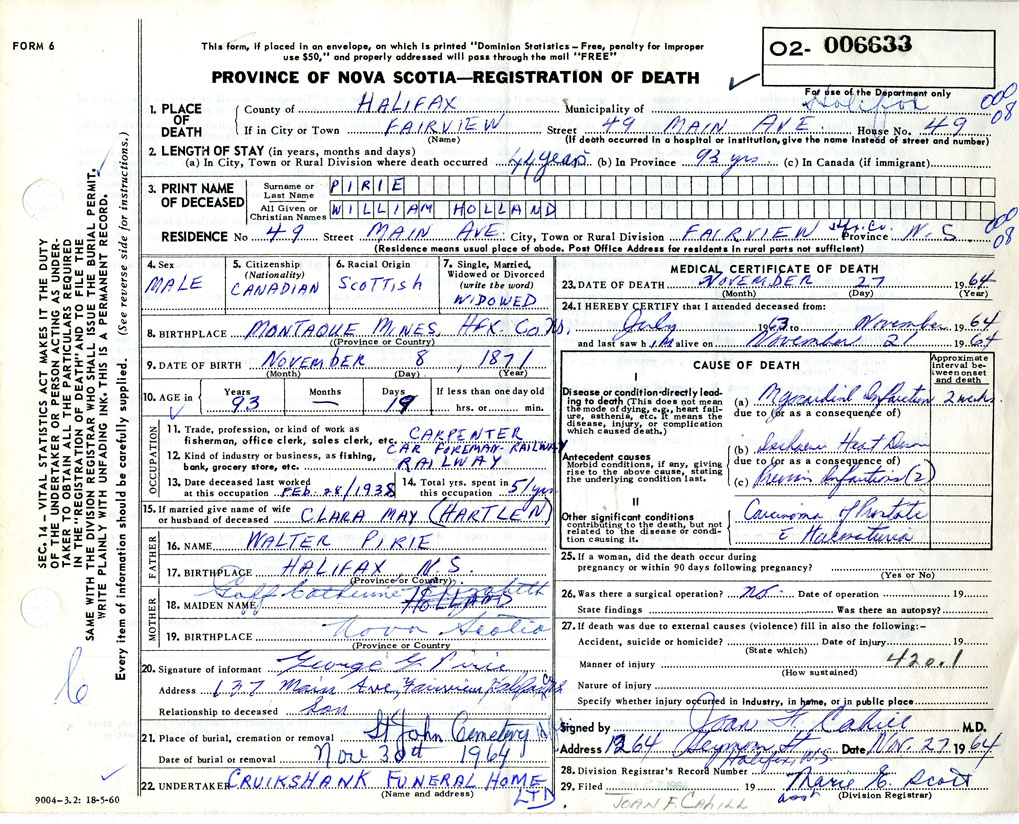 FORM 6
This form, if placed in an envelope, on which is printed "Dominion Statistics – Free, penalty for improper
use $50," and properly addressed will pass through the mail "FREE"
PROVINCE OF NOVA SCOTIA—REGISTRATION OF DEATH
02- 006633
For use of the Department only
Halifax
000
08
1. PLACE OF DEATH
County of HALIFAX Municipality of
If in City or Town FAIRVIEW Street 49 MAIN AVE. House No. 49
(Name) (If death occurred in a hospital or institution, give the name instead of street and number)
2. LENGTH OF STAY (in years, months and days)
(a) In City, Town or Rural Division where death occurred 44 years (b) In Province 93 yrs (c) In Canada (if immigrant)
3. PRINT NAME OF DECEASED
Surname or Last Name PIRIE
All Given or Christian Names WILLIAM HOLLAND
RESIDENCE No 49 Street MAIN AVE. City, Town or Rural Division FAIRVIEW Hfx. Co. Province N.S.
000
08
(Residence means usual place of abode. Post Office Address for residents in rural parts not sufficient)
4. Sex
MALE
5. Citizenship
(Nationality)
CANADIAN
6. Racial Origin
SCOTTISH
7. Single, Married,
Widowed or Divorced
(write the word)
WIDOWED
8. BIRTHPLACE MONTAQUE MINES HFX Co. NS.
(Province or Country)
9. DATE OF BIRTH NOVEMBER 8, 1871
(Month) (Day) (Year)
10. AGE in Years 93 Months — Days 19 If less than one day old
hrs. or min.
OCCUPATION
11. Trade, profession, or kind of work as
fisherman, office clerk, sales clerk, etc. CARPENTER
CAR FOREMAN-RAILWAY
12. Kind of industry or business, as fishing,
bank, grocery store, etc. RAILWAY
13. Date deceased last worked
at this occupation FEB. 28/1938
14. Total yrs. spent in
this occupation 51 yrs
15. If married give name of wife
or husband of deceased CLARA MAY (HARTLEN)
FATHER
16. NAME WALTER PIRIE
17. BIRTHPLACE HALIFAX N.S.
(Province or Country)
MOTHER
Goff Catherine Elizabeth
18. MAIDEN NAME HOLLAND
19. BIRTHPLACE Nova Scotia
(Province or Country)
20. Signature of informant George G. Pirie
Address 137 Main Ave, Fairview, Halifax Co NS
Relationship to deceased Son
21. Place of burial, cremation or removal St John Cemetery
Date of burial or removal Nov 30th 1964
22. UNDERTAKER CRUIKSHANK FUNERAL HOME
LTD.
(Name and address)
9004—3.2: 18-5-60
MEDICAL CERTIFICATE OF DEATH
23. DATE OF DEATH NOVEMBER 27 1964
(Month) (Day) (Year)
24. I HEREBY CERTIFY that I attended deceased from:
July 1963 to November 1964
and last saw him alive on November 21 1964
CAUSE OF DEATH
Approximate
interval be-
tween onset
and death
I
Disease or condition directly lead-
ing to death (This does not mean
the mode of dying, e.g., heart fail-
ure, asthenia, etc. It means the
disease, injury, or complication
which caused death.)
(a) Myocardial Infarction 2 weeks
due to (or as a consequence of)
Antecedent causes
Morbid conditions, if any, giving
rise to the above cause, stating
the underlying condition last.
(b) Ischemic Heart Disease
due to (or as a consequence of)
(c) Previous Infarctions (2)
II
Other significant conditions
contributing to the death, but not
related to the disease or condi-
tion causing it.
Carcinoma of Prostate
c Hematuria
25. If a woman, did the death occur during
pregnancy or within 90 days following pregnancy?
(Yes or No)
26. Was there a surgical operation? no. Date of operation 19
State findings Was there an autopsy?
27. If death was due to external causes (violence) fill in also the following:-
Accident, suicide or homicide? Date of injury 19
(State which)
420.1
Manner of injury
(How sustained)
Nature of injury
Specify whether injury occurred in Industry, in home, or in public place
Signed by Joan F. Cahill M.D.
Address 1264 Seymour St Date Nov. 27 1964
Halifax, N.S.
28. Division Registrar's Record Number
29. Filed 19 Marie E. Scott
asst (Division Registrar)
JOAN F. CAHILL
SEC. 14—VITAL STATISTICS ACT MAKES IT THE DUTY
OF THE UNDERTAKER OR PERSON ACTING AS UNDER-
TAKER TO OBTAIN ALL THE PARTICULARS REQUIRED
IN THE "REGISTRATION OF DEATH" AND TO FILE THE
SAME WITH THE DIVISION REGISTRAR WHO SHALL ISSUE THE BURIAL PERMIT.
WRITE PLAINLY WITH UNFADING INK. THIS IS A PERMANENT RECORD.
Every item of information should be carefully supplied. (See reverse side for instructions.)